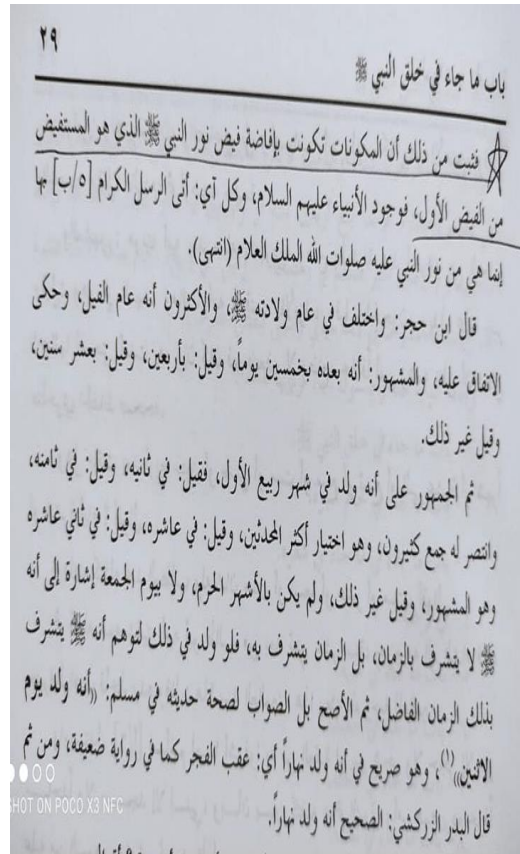 ٢٩
باب ما جاء في خلق النبي ﷺ
فثبت من ذلك أن المكونات تكونت بإفاضة فيض نور النبي ﷺ الذي هو المستفيض
من الفيض الأول، فوجود الأنبياء عليهم السلام، وكل آي: أتى الرسل الكرام [٥/ب] بها
إنما هي من نور النبي عليه صلوات الله الملك العلام (انتهى).
قال ابن حجر: واختلف في عام ولادته ﷺ، والأكثرون أنه عام الفيل، وحكى
الاتفاق عليه، والمشهور: أنه بعده بخمسين يوماً، وقيل: بأربعين، وقيل: بعشر سنين،
وقيل غير ذلك.
ثم الجمهور على أنه ولد في شهر ربيع الأول، فقيل: في ثانيه، وقيل: في ثامنه،
وانتصر له جمع كثيرون، وهو اختيار أكثر المحدثين، وقيل: في عاشره، وقيل: في ثاني عاشره
وهو المشهور، وقيل غير ذلك، ولم يكن بالأشهر الحرم، ولا بيوم الجمعة إشارة إلى أنه
ﷺ لا يتشرف بالزمان، بل الزمان يتشرف به، فلو ولد في ذلك لتوهم أنه ﷺ يتشرف
بذلك الزمان الفاضل، ثم الأصح بل الصواب لصحة حديثه في مسلم: «أنه ولد يوم
الاثنين»(١)، وهو صريح في أنه ولد نهاراً أي: عقب الفجر كما في رواية ضعيفة، ومن ثم
قال البدر الزركشي: الصحيح أنه ولد نهاراً.
SHOT ON POCO X3 NFC